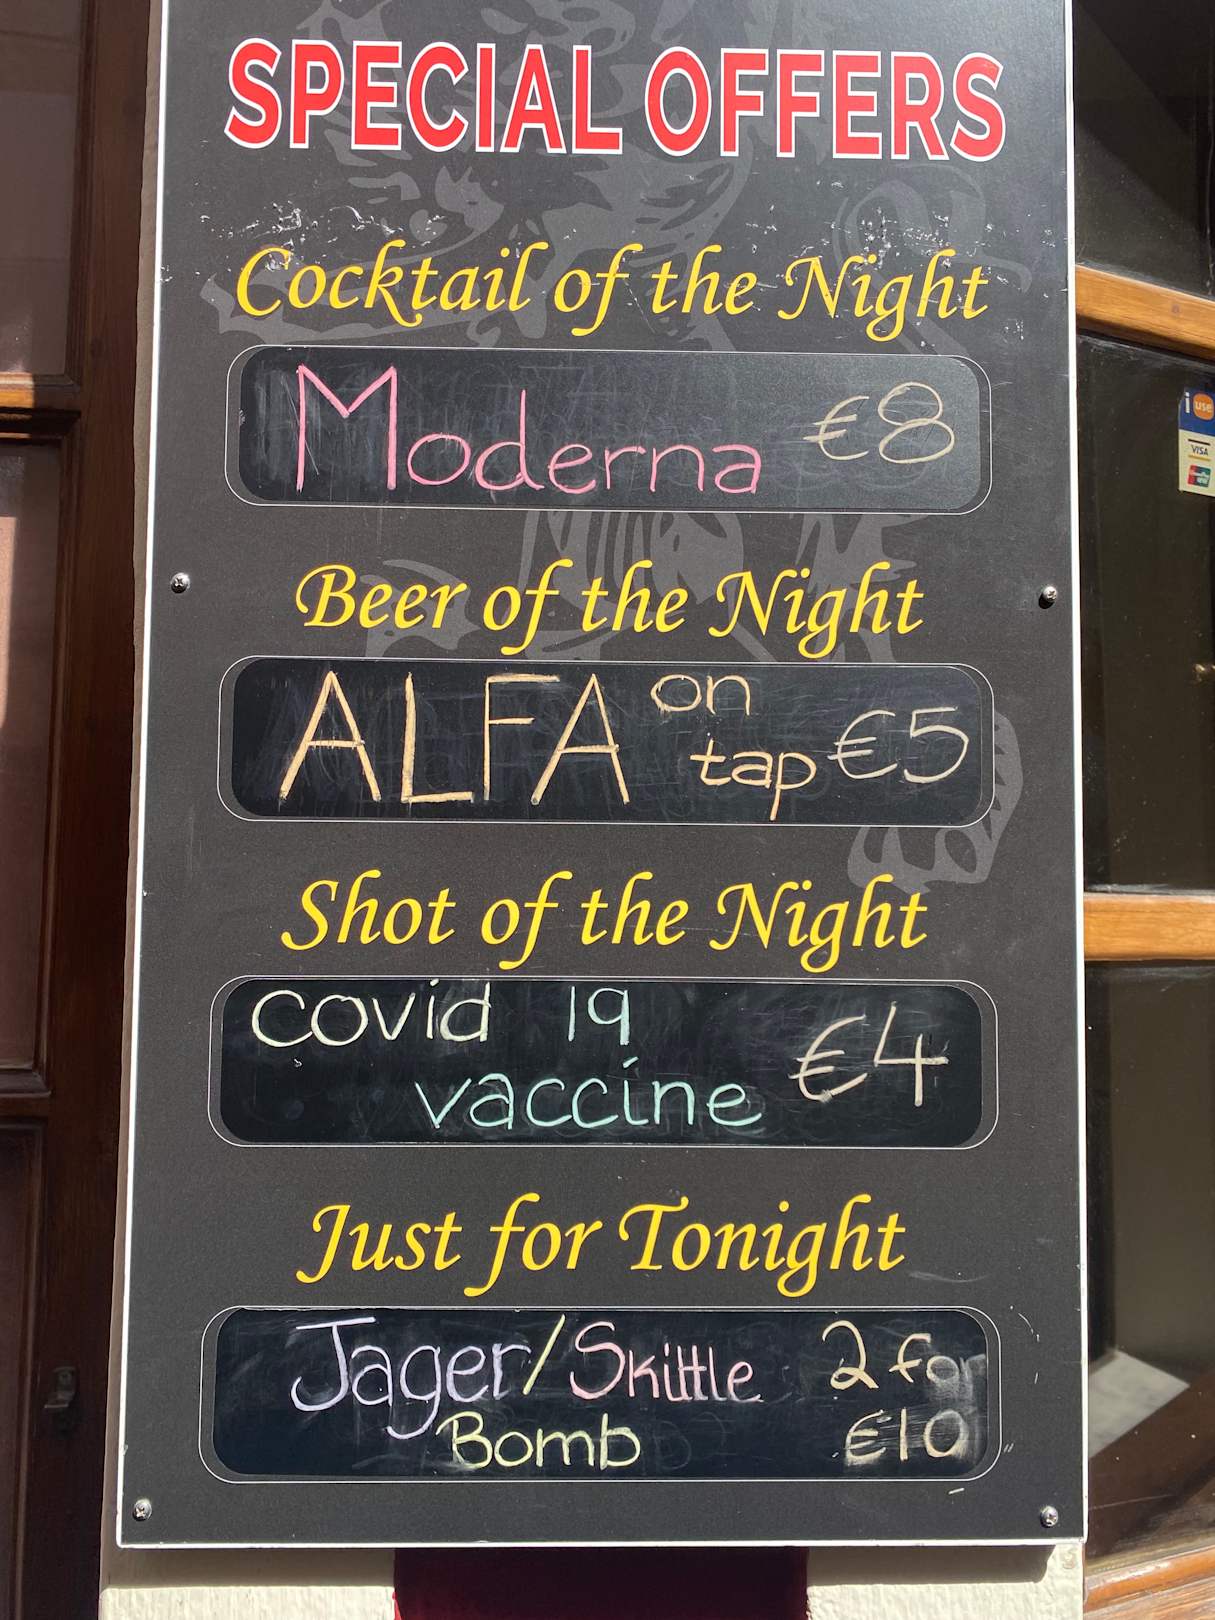 SPECIAL OFFERS
Cocktail of the Night
Moderna €8
Beer of the Night
ALFA on tap €5
Shot of the Night
covid 19
vaccine €4
Just for Tonight
Jager/Skittle 2 for
Bomb €10
i use
VISA